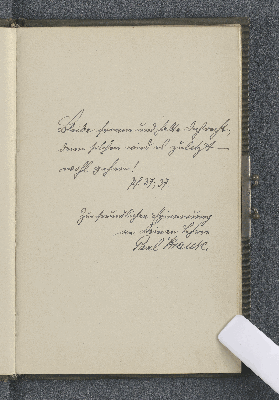 Bleibe fromm und halte dich recht,
denn solchen wird es zuletzt
wohl gehen!
Ps. 37, 37
Zur freundlichen Erinnerung
an Deinen Lehrer
Paul